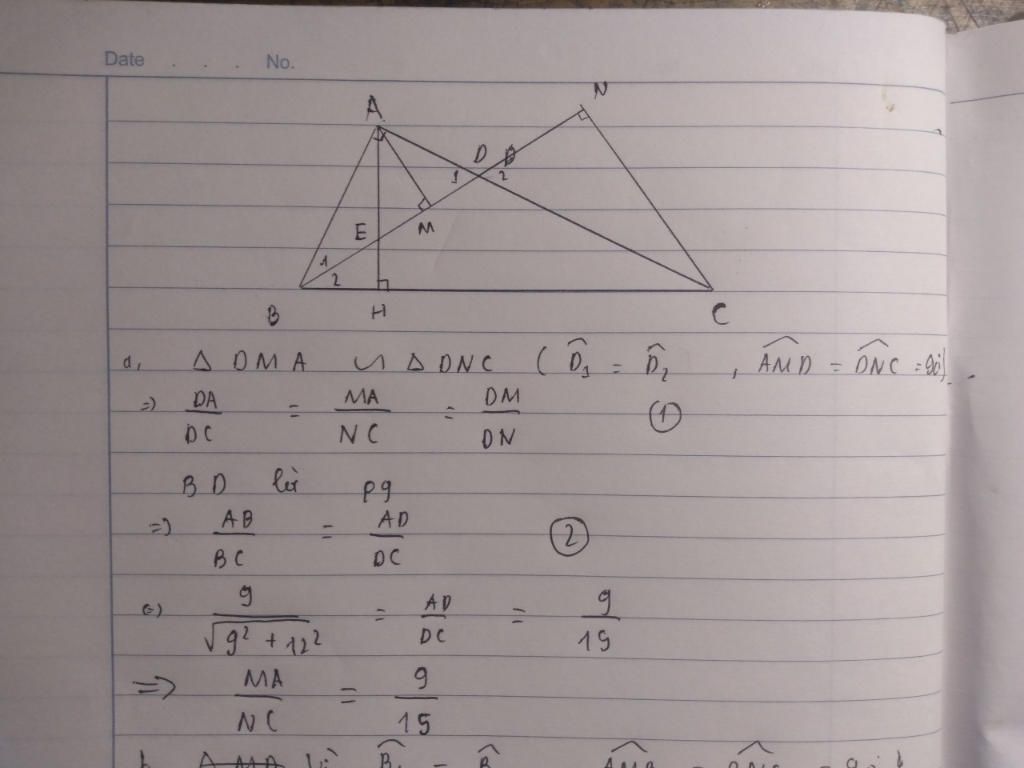 Date . . . No.
N
A
D
1 2
E M
1
2
B H C
a, Δ DMA ∽ Δ DNC ( D̂₁ = D̂₂ , AMD^ = DNC^ = 90°)
=> DA/DC = MA/NC = DM/DN ①
BD là pg
=> AB/BC = AD/DC ②
(=) 9/√(9² + 12²) = AD/DC = 9/15
=> MA/NC = 9/15